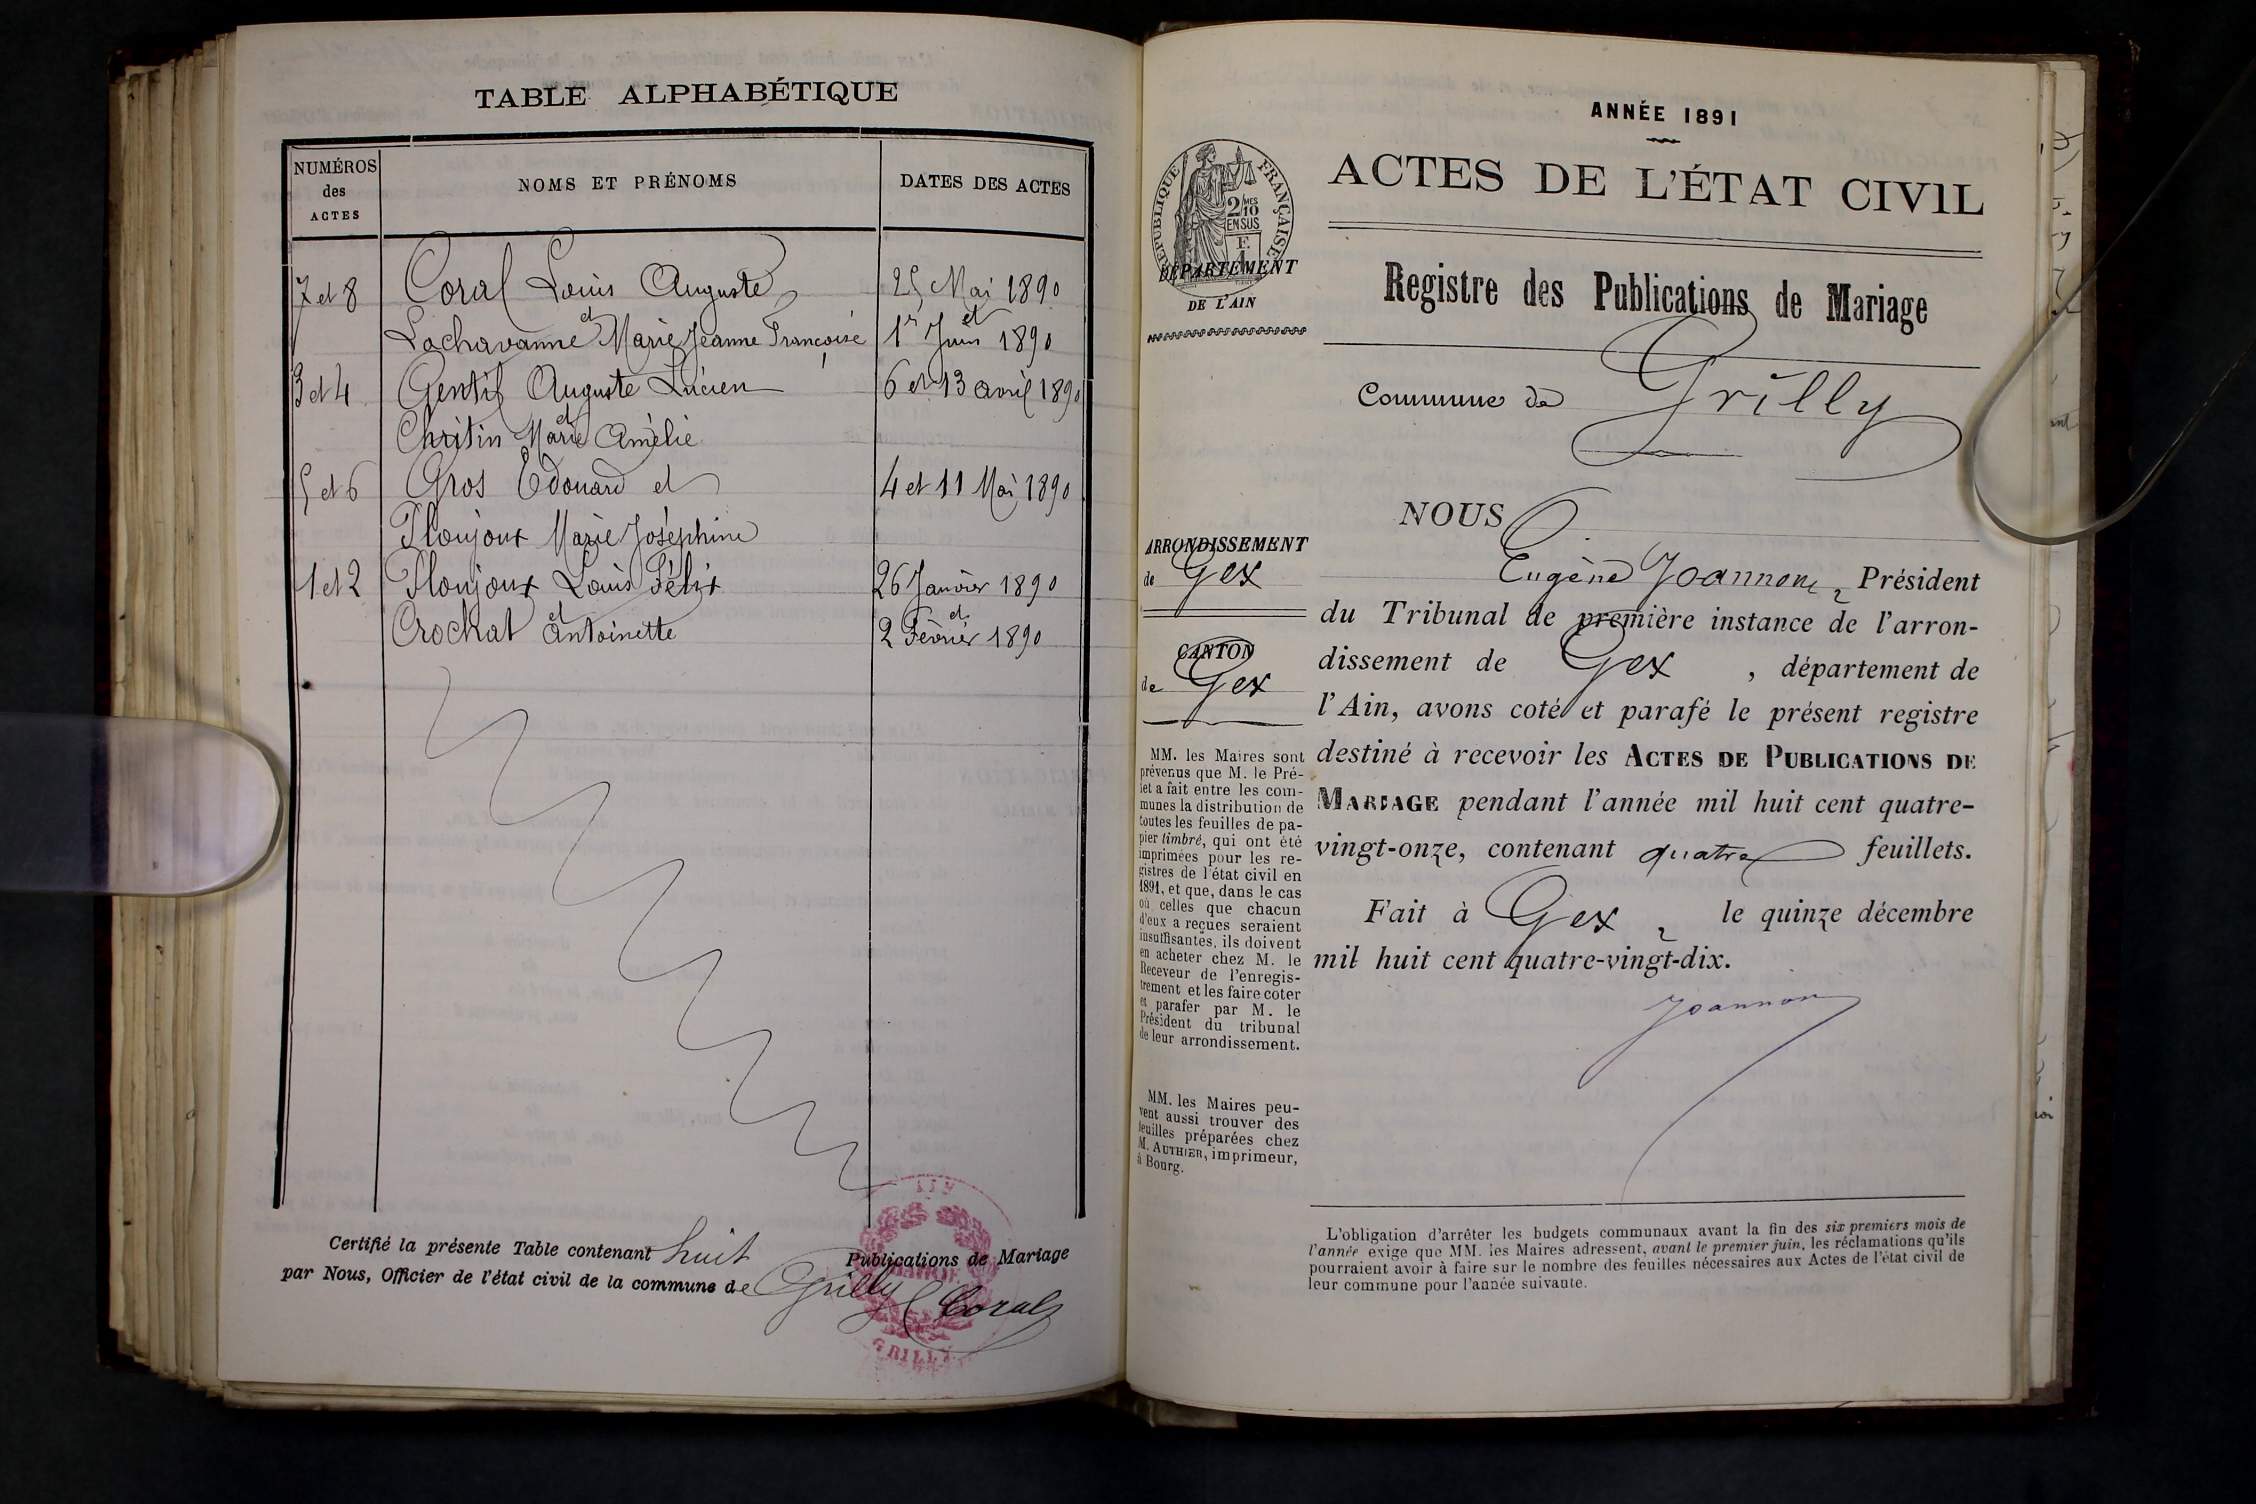 TABLE ALPHABÉTIQUE
NUMÉROS des ACTES
NOMS ET PRÉNOMS
DATES DES ACTES
7 et 8 Coral Louis Auguste 25 Mai 1890
et et
Lachavanne Marie Jeanne Françoise 1er Juin 1890
3 et 4 Gentil Auguste Lucien 6 et 13 avril 1890
et
Christin Marie Amélie
5 et 6 Gros Edouard et 4 et 11 Mai 1890
Ploujoux Marie Joséphine
1 et 2 Ploujoux Louis Félix 26 Janvier 1890
et et
Crochat Antoinette 2 Février 1890
Certifié la présente Table contenant huit Publications de Mariage
par Nous, Officier de l'état civil de la commune de Grilly
Coral
GRILLY
ANNÉE 1891
ACTES DE L'ÉTAT CIVIL
RÉPUBLIQUE FRANÇAISE
2/10MES
EN SUS
DÉPARTEMENT
DE L'AIN
Registre des Publications de Mariage
Commune de Grilly
ARRONDISSEMENT
de Gex
CANTON
de Gex
MM. les Maires sont
prévenus que M. le Pré-
fet a fait entre les com-
munes la distribution de
toutes les feuilles de pa-
pier timbré, qui ont été
imprimées pour les re-
gistres de l'état civil en
1891, et que, dans le cas
où celles que chacun
d'eux a reçues seraient
insuffisantes, ils doivent
en acheter chez M. le
Receveur de l'enregis-
trement et les faire coter
et parafer par M. le
Président du tribunal
de leur arrondissement.
MM. les Maires peu-
vent aussi trouver des
feuilles préparées chez
M. AUTHIER, imprimeur,
à Bourg.
NOUS
Eugène Joannon, Président
du Tribunal de première instance de l'arron-
dissement de Gex , département de
l'Ain, avons coté et parafé le présent registre
destiné à recevoir les ACTES DE PUBLICATIONS DE
MARIAGE pendant l'année mil huit cent quatre-
vingt-onze, contenant quatre feuillets.
Fait à Gex, le quinze décembre
mil huit cent quatre-vingt-dix.
Joannon
L'obligation d'arrêter les budgets communaux avant la fin des six premiers mois de
l'année exige que MM. les Maires adressent, avant le premier juin, les réclamations qu'ils
pourraient avoir à faire sur le nombre des feuilles nécessaires aux Actes de l'état civil de
leur commune pour l'année suivante.